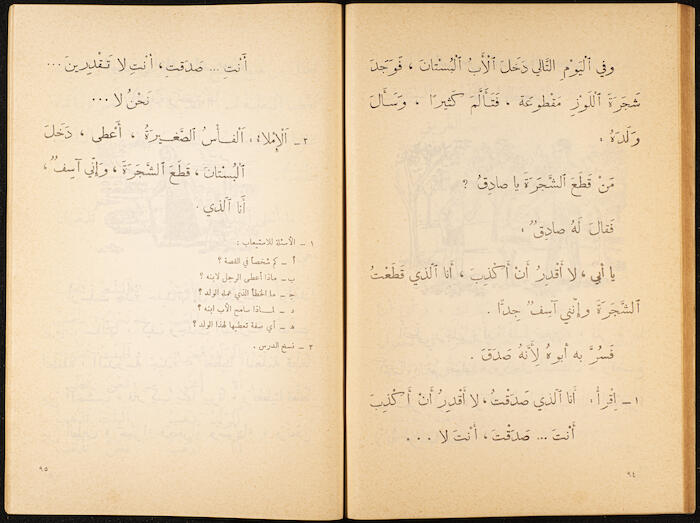 وفي ٱلْيَوْمِ التَّالي دَخَلَ ٱلْأَبُ ٱلْبُسْتَانَ ، فَوَجَدَ
شَجَرَةَ ٱللَّوْزِ مَقْطوعَةً ، فَتَأَلَّمَ كَثيرًا ، وَسَأَلَ
وَلَدَهُ :
مَنْ قَطَعَ ٱلشَّجَرَةَ يا صادِقُ ؟
فَقالَ لَهُ صادِقٌ :
يا أَبي ، لا أَقْدِرُ أَنْ أَكْذِبَ ، أَنا ٱلَّذي قَطَعْتُ
ٱلشَّجَرَةَ وَإِنَّني آسِفٌ جِدًّا .
فَسُرَّ بِهِ أَبوهُ لِأَنَّهُ صَدَقَ .
١ – اِقْرَأْ : أَنا ٱلَّذي صَدَقْتُ ، لا أَقْدِرُ أَنْ أَكْذِبَ
أَنْتَ ... صَدَقْتَ ، أَنْتَ لا ...
٩٤
أَنْتِ ... صَدَقْتِ ، أَنْتِ لا تَقْدِرينَ ...
نَحْنُ لا ...
٢ – ٱلْإِمْلاءُ : ٱلْفَأْسُ ٱلصَّغيرَةُ ، أَعْطى ، دَخَلَ
ٱلْبُسْتانَ ، قَطَعَ ٱلشَّجَرَةَ ، وَإِنّي آسِفٌ ،
أَنا ٱلَّذي .
١ – الأسئلة للاستيعاب :
أ – كم شخصاً في القصة ؟
ب – ماذا أعطى الرجل لابنه ؟
ج – ما الخطأ الذي عمله الولد ؟
د – لماذا سامح الأب ابنه ؟
ه – أي صفة تعطيها لهذا الولد ؟
٢ – نسخ الدرس .
٩٥